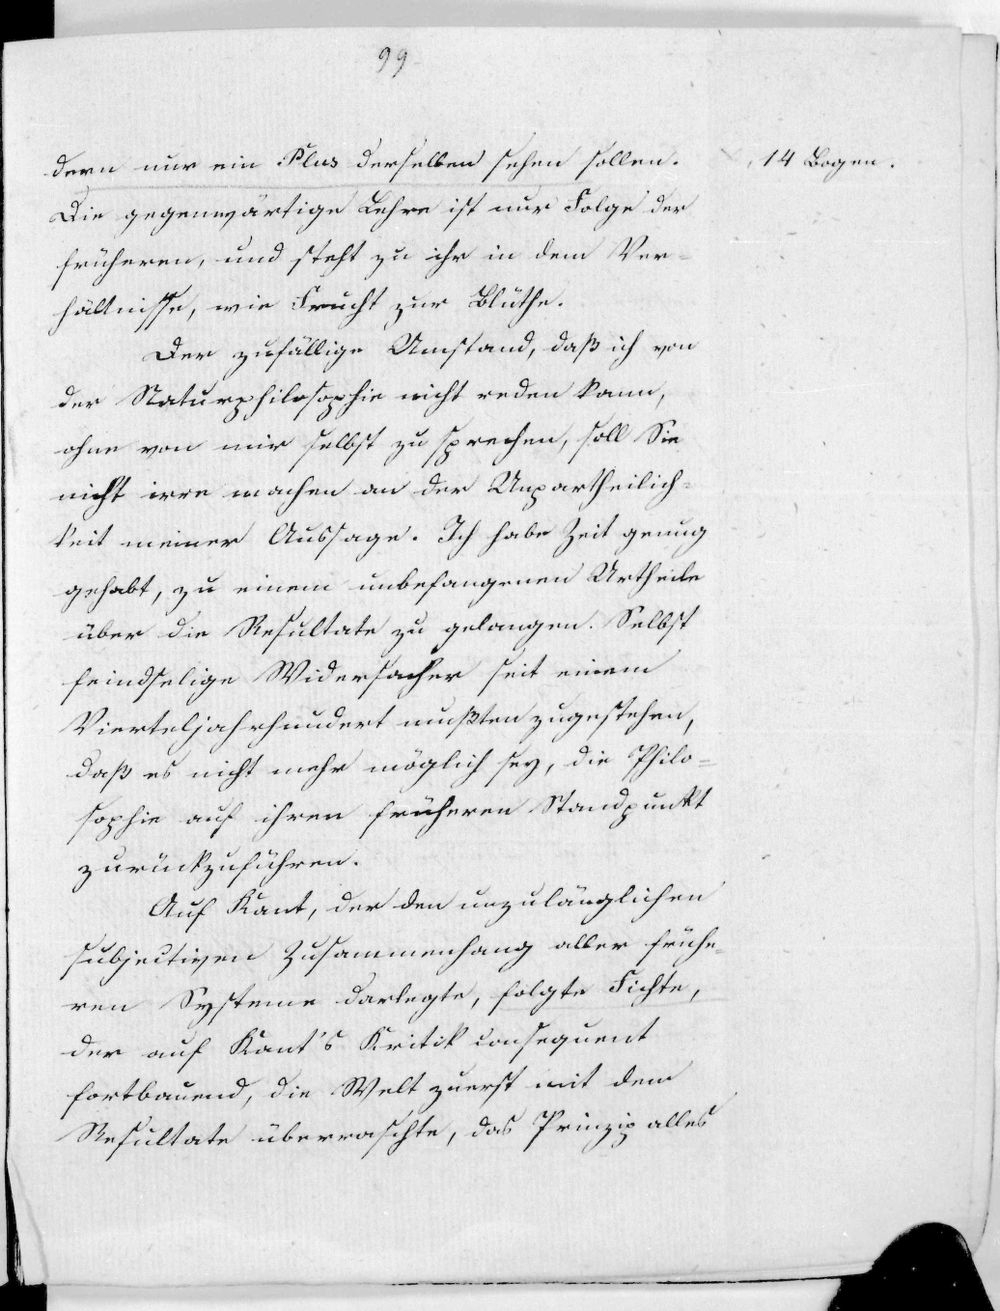 99
dern nur ein Plus derselben sehen sollen.
14 Bogen.
Die gegenwärtige Lehre ist nur Folge der
früheren, und steht zu ihr in dem Ver-
hältnisse, wie Frucht zur Blüthe.
Der zufällige Umstand, daß ich von
der Naturphilosophie nicht reden kann,
ohne von mir selbst zu sprechen, soll Sie
nicht irre machen an der Unpartheilich-
keit meiner Aussage. Ich habe Zeit genug
gehabt, zu einem unbefangenen Urtheile
über die Resultate zu gelangen. Selbst
feindselige Widersacher seit einem
Vierteljahrhundert mußten zugestehen,
daß es nicht mehr möglich sey, die Philo-
sophie auf ihren früheren Standpunkt
zurückzuführen.
Auf Kant, der den unzulänglichen
subjectiven Zusammenhang aller frühe-
ren Systeme darlegte, folgte Fichte,
der auf Kant's Kritik consequent
fortbauend, die Welt zuerst mit dem
Resultate überraschte, das Prinzip alles